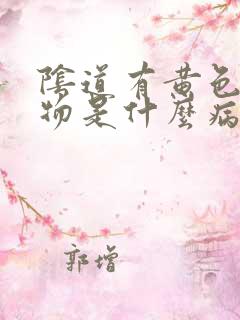 陰道有黄色
物是什麼病
郭增